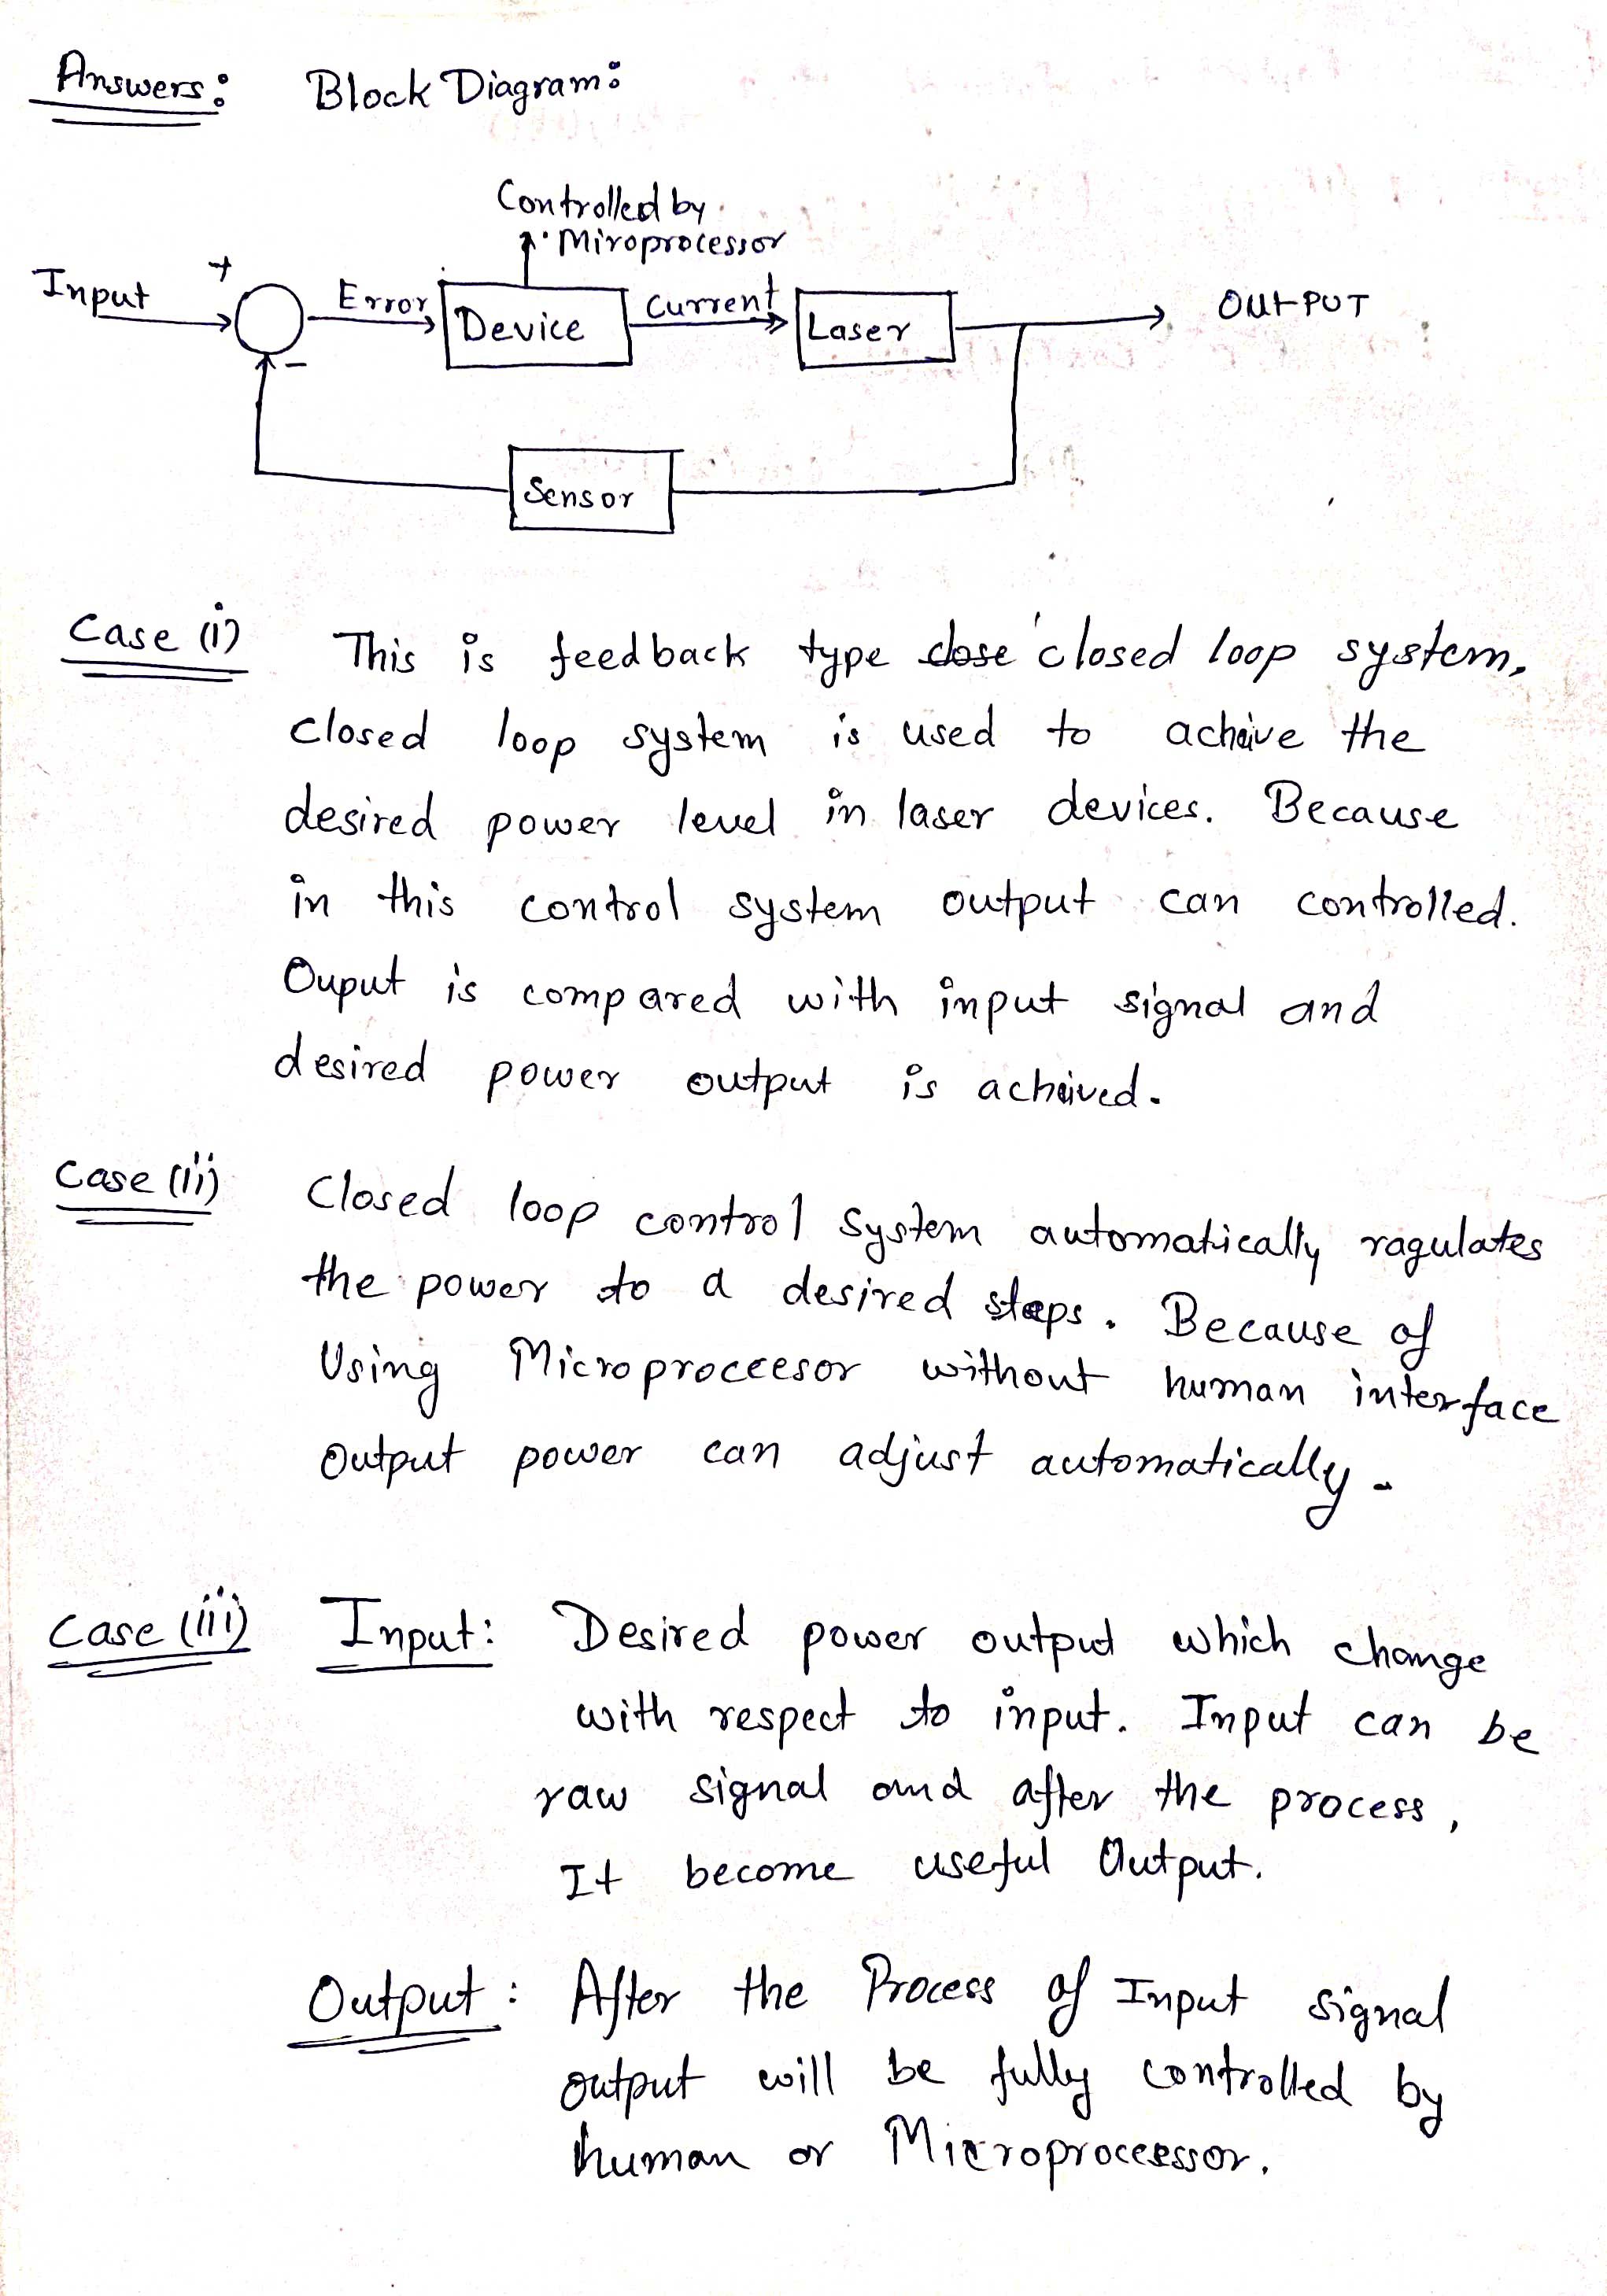 Answers: Block Diagram:
Controlled by
Miroprocessor
Input + Error Device Current Laser OUTPUT
−
Sensor
Case (i) This is feedback type close closed loop system,
closed loop system is used to acheive the
desired power level in laser devices. Because
in this control system output can controlled.
Ouput is compared with input signal and
desired power output is acheived.
Case (ii) Closed loop control system automatically ragulates
the power to a desired steps. Because of
Using Microproceesor without human interface
Output power can adjust automatically.
Case (iii) Input: Desired power output which change
with respect to input. Input can be
raw signal and after the process,
It become useful Output.
Output: After the Process of Input signal
output will be fully controlled by
human or Microprocessor.